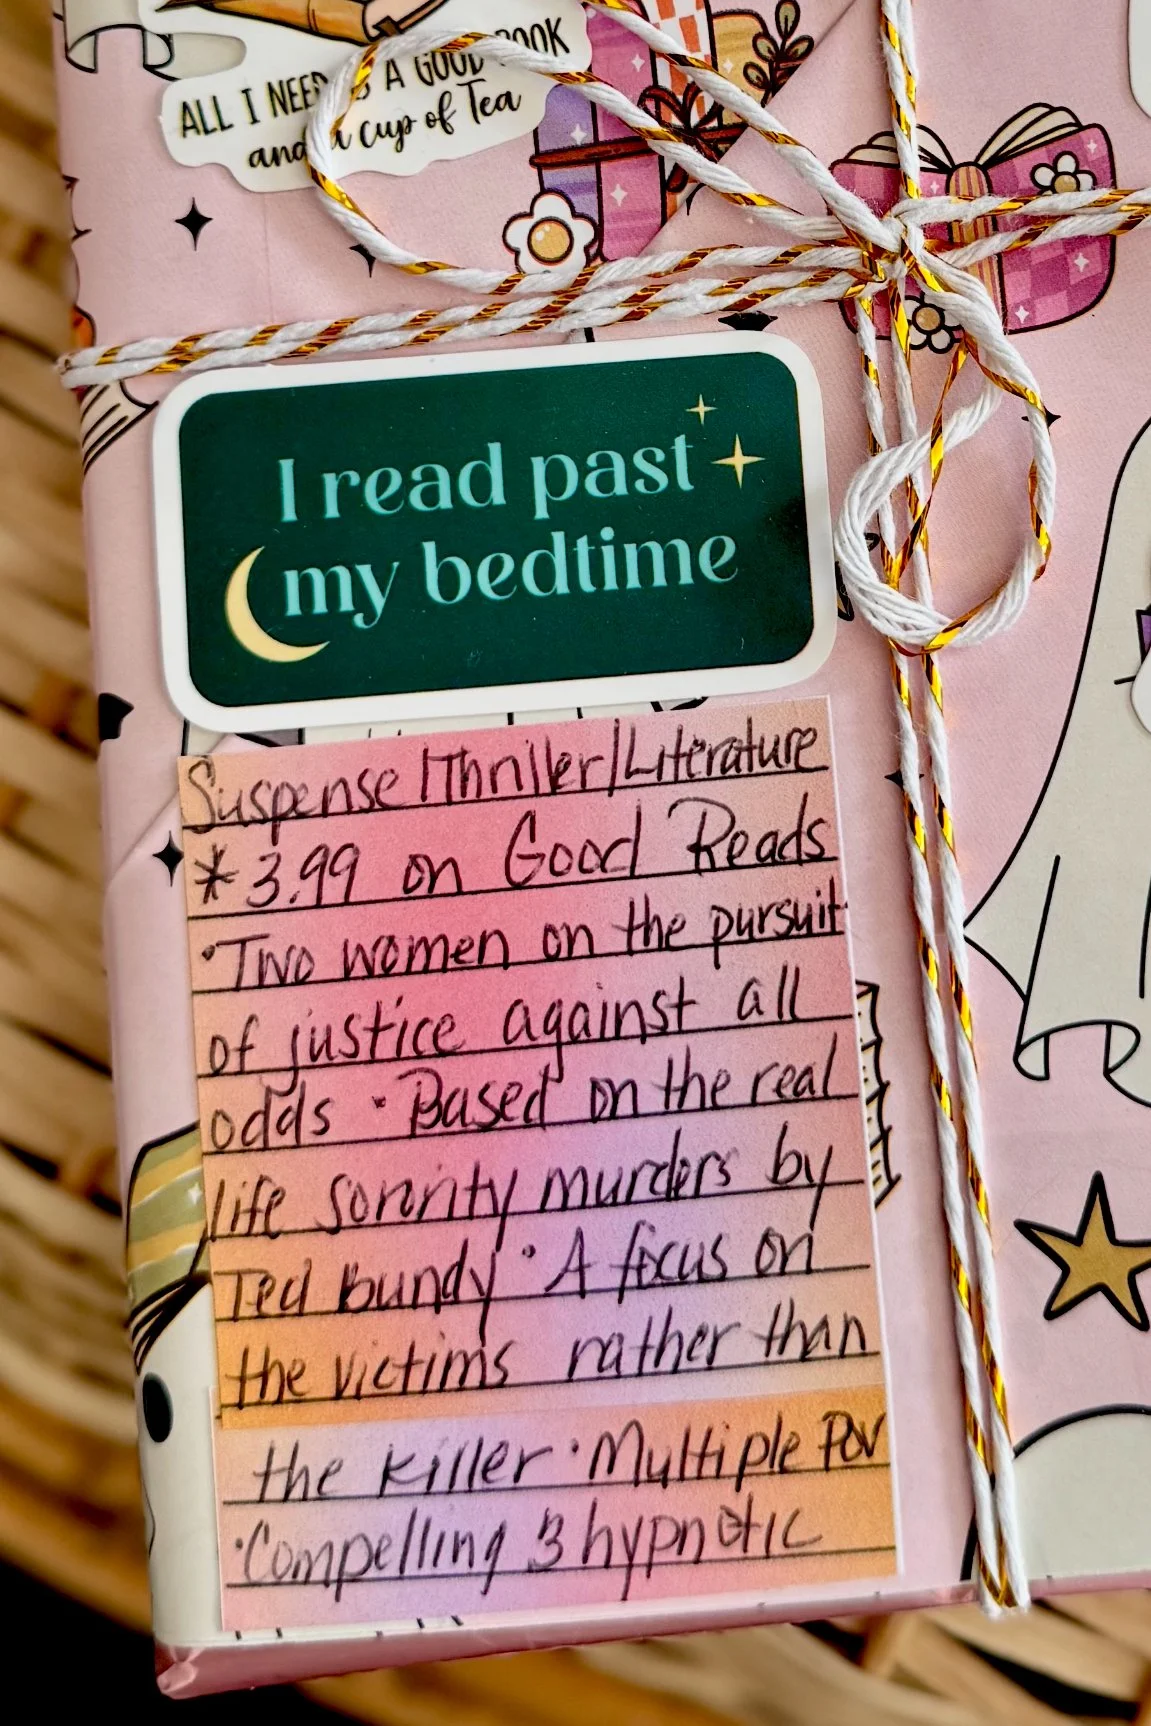 ALL I NEED IS A GOOD BOOK
and a cup of Tea
I read past
my bedtime
Suspense/Thriller/Literature
* 3.99 on Good Reads
· Two women on the pursuit
of justice against all
odds · Based on the real
life sorority murders by
Ted Bundy · A focus on
the victims rather than
the killer · Multiple POV
· Compelling & hypnotic